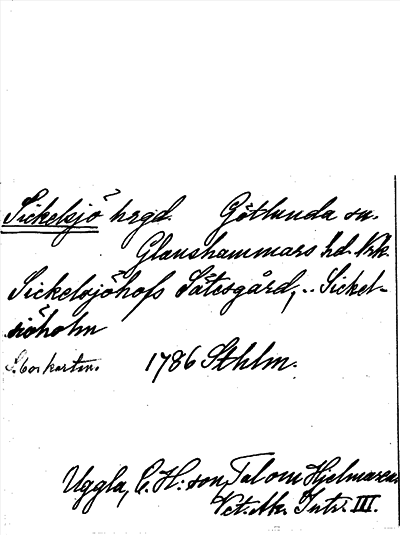 Sickelsjö hrgd. Götlunda sn.
Glanshammars hd. Örk.
Sickelsjöhofs Sätesgård, .. Sickel-
sjöholm
1786 Sthlm.
Uggla, C. H:son, Tal om Hjelmaren
Vet. Ak. Intr. III.